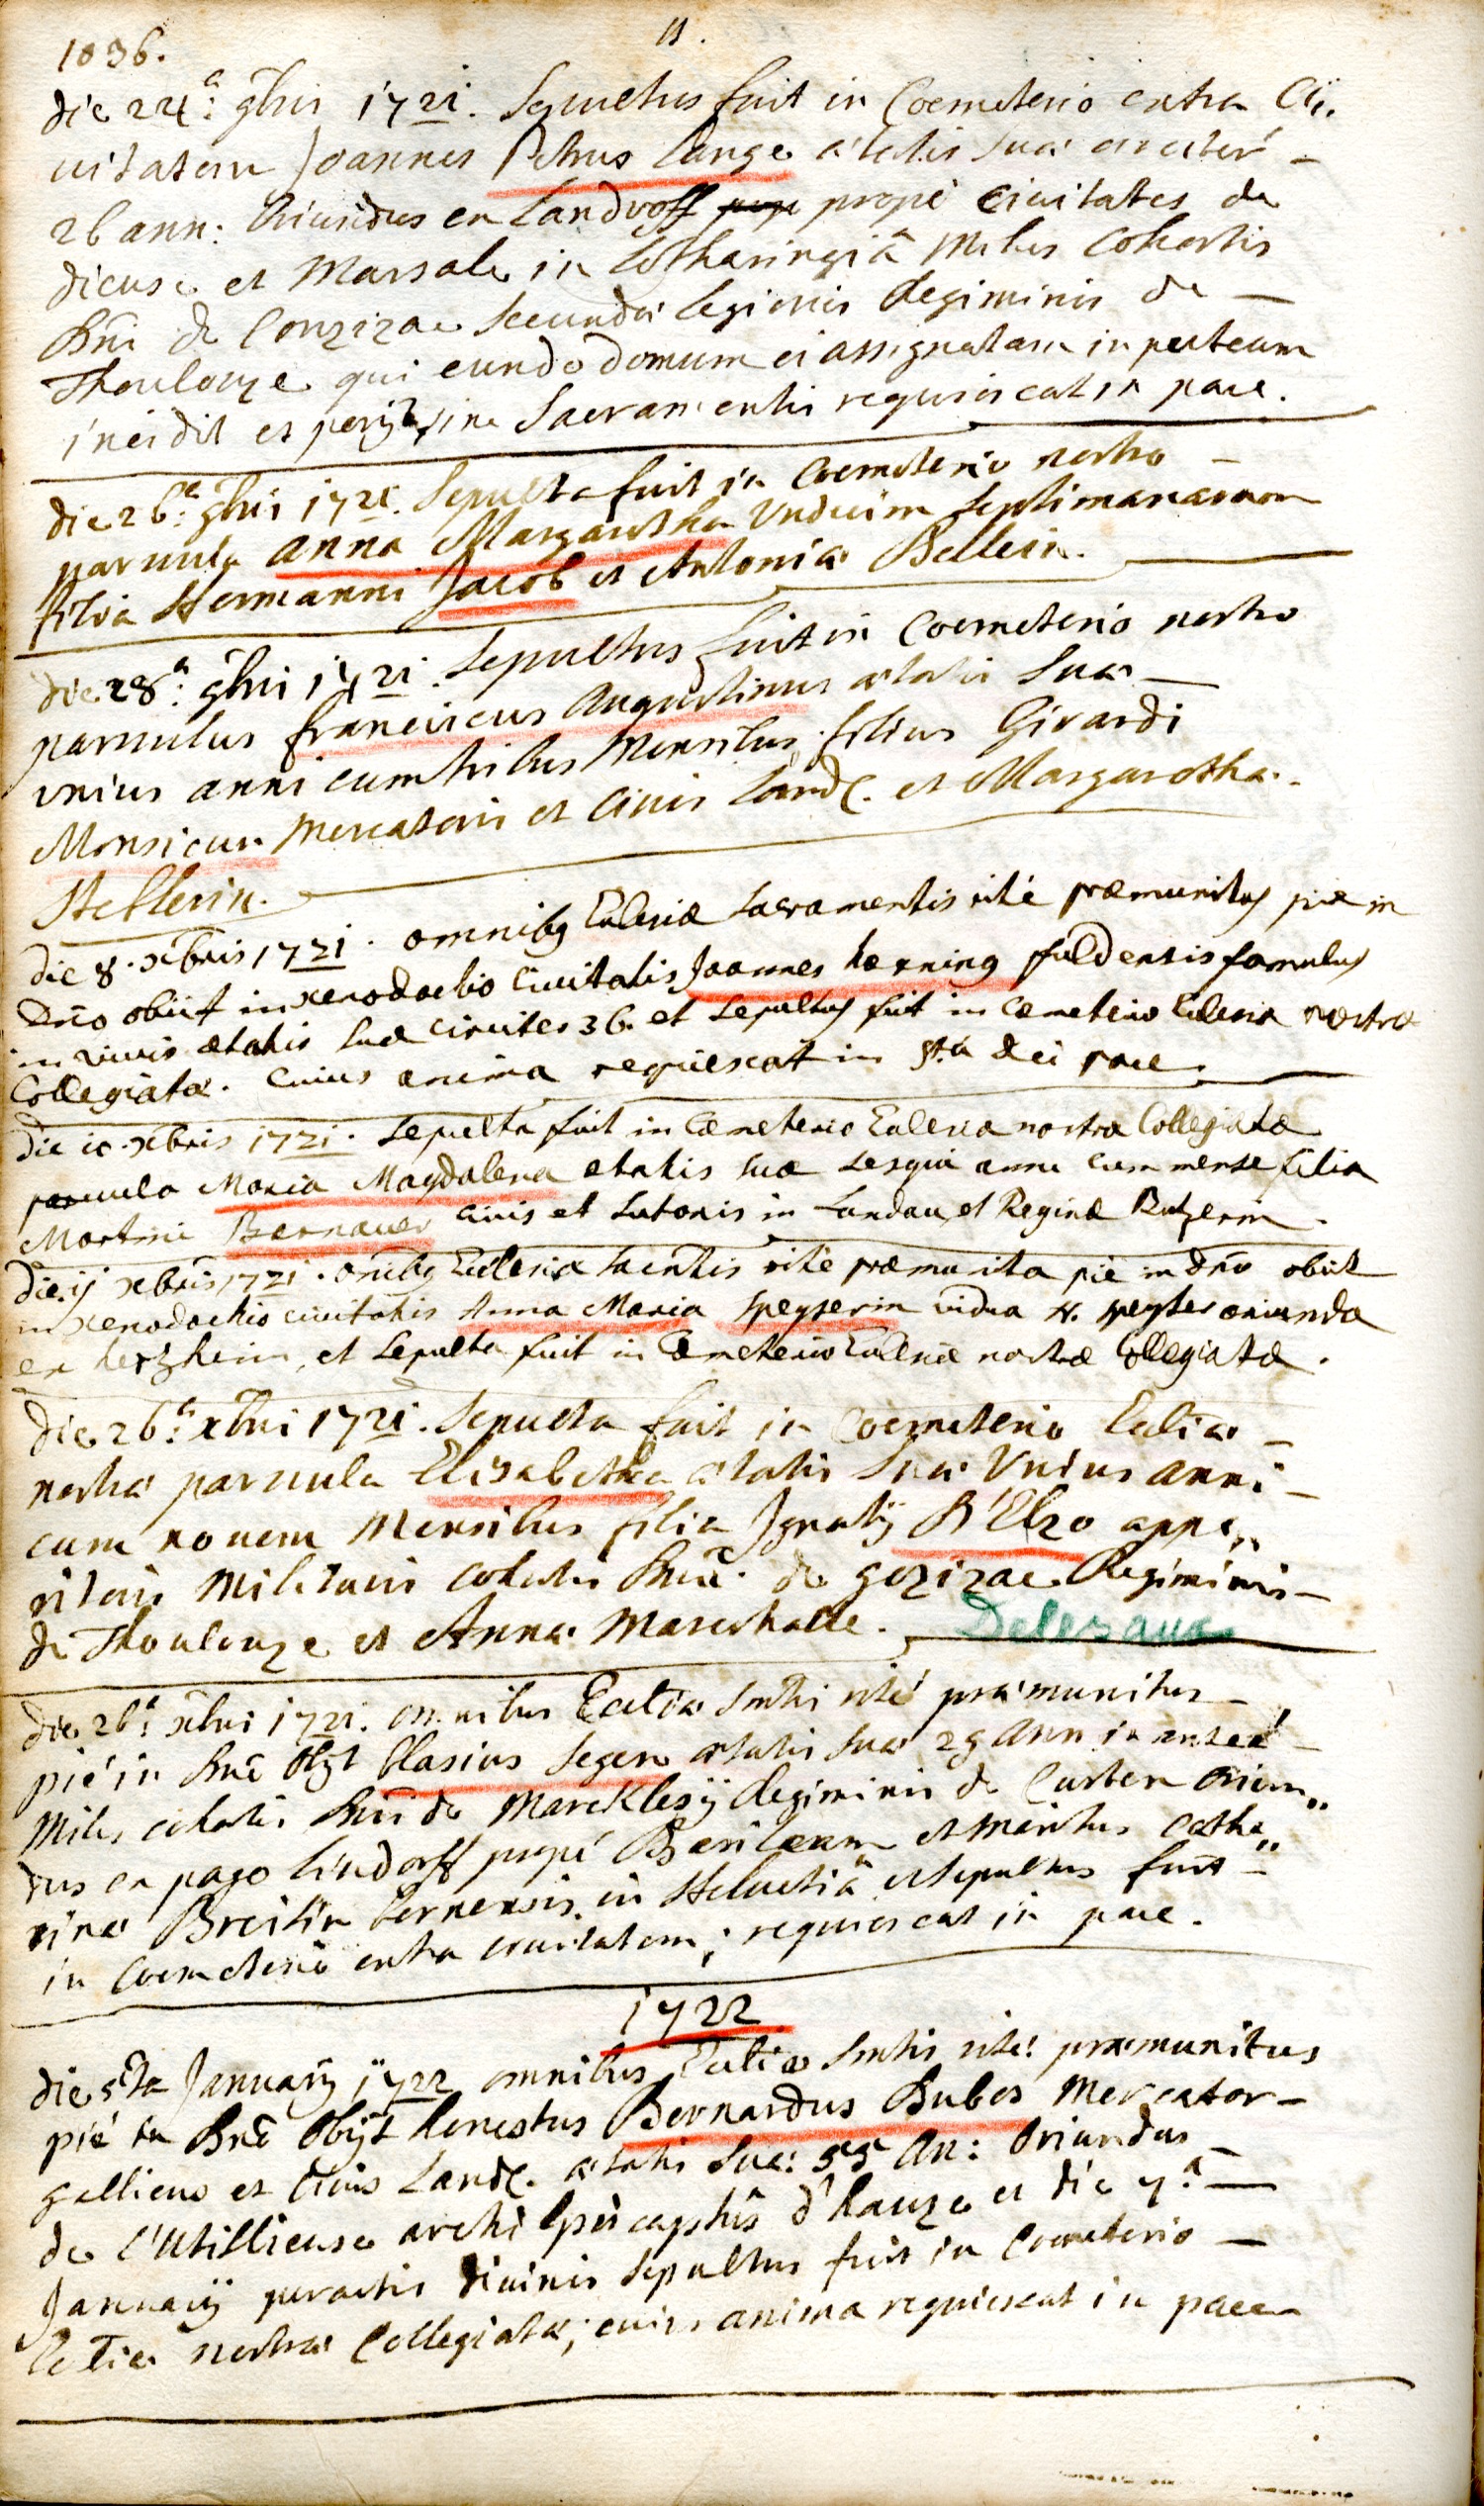 1036.
11.
die 24ª: 9bris 1721. Sepultus fuit in Coemeterio extra Ci:
uitatem Joannes Petrus Lange ætatis suæ circiter –
26 ann: Oriundus ex Landroff prope ciuitates de
dieuse et Marsale in Lotharingiâ Miles Cohortis
Dni de Conzizae secundæ legionis Regiminis de –
Thoulouze qui eundo domum ei assignatam in puteum
incidit et periit sine Sacramentis requiescat in pace.
die 26ª: 9bris 1721. Sepulta fuit in Coemeterio nostro –
paruula anna Margaretha Undecim septimanarum
filia Hermanni Jacob et Antoniæ Bellerin.
die 28ª: 9bris 1721. Sepultus fuit in Coemeterio nostro
paruulus franciscus Augustinus ætatis suæ –
unius anni cum tribus Mensibus filius Girardi
Monsieur Mercatoris et Ciuis Land. et Margarethæ.
Stellerin.
die 8. xbris 1721. omnibg Ecclesiæ Sacramentis rite præmunitus pie in
Dno obiit in xenodochio Ciuitatis Joannes herning fuldensis famulus
in viuis ætatis suæ circiter 36. et Sepultus fuit in Cæmeterio Ecclesiæ nostræ
Collegiatæ. Cuius anima requiescat in Sta dei pace.
die 10. xbris 1721. Sepulta fuit in Cæmeterio Ecclesiæ nostræ Collegiatæ
paruula Maria Magdalena ætatis suæ Sesqui anni cum mense filia
Martini Bernauer ciuis et Sutoris in Landau, et Reginæ Butzerin.
die ij xbris 1721. oñibg Ecclesiæ Sacntis ritè præmunita pie in dño obiit
in xenodochio ciuitatis Anna Maria Speyserin vidua N. speyser oriunda
ex herxheim, et Sepulta fuit in Cæmeterio Ecclesiæ nostræ Collegiatæ.
die 26ª: xbris 1721. Sepulta fuit in Coemeterio Ecclïæ –
nostræ paruula Elisabetha ætatis suæ Unius anni –
cum nouem Mensibus filia Ignatij D'Elzo appa„
ritoris Militaris cohortis Dni de gozizae Regiminis –
de Thoulouze et Annæ Mareschalle. Delesaux
die 26ª: xbris 1721. omnibus Ecclïæ Smtis rité præmunitus –
pié in Dnô Obijt blasius Seger ætatis suæ 29 ann
Miles cohortis Dni de Marcklesÿ Regiminis de Curten Oriun„
dus ex pago lindorff propé Basileam et Maritus Catha„
rinæ Breitin bernensis in Helvetiâ et Sepultus fuit –
in Coemeterio extra ciuitatem; requiescat in pace.
1722
die 5ta Januarij 1722 omnibus Ecclïæ Smtis rité præmunitus
pié in Dnô Obijt honestus Bernardus Dubos Mercator –
gallicus et Ciuis Land. ætatis suæ: 55 An: Oriundus –
de archi d'hauze et die 7ª –
Januarij peractis diuinis Sepultus fuit in Coemeterio –
Ecclïæ nostræ Collegiatæ; cuius anima requiescat in pace